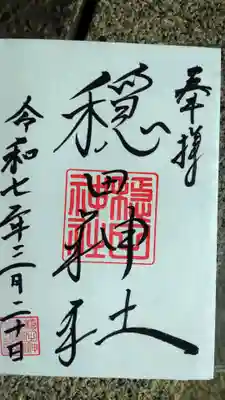 奉拝
穏田神社
穏田
神社
令和七年三月二十日